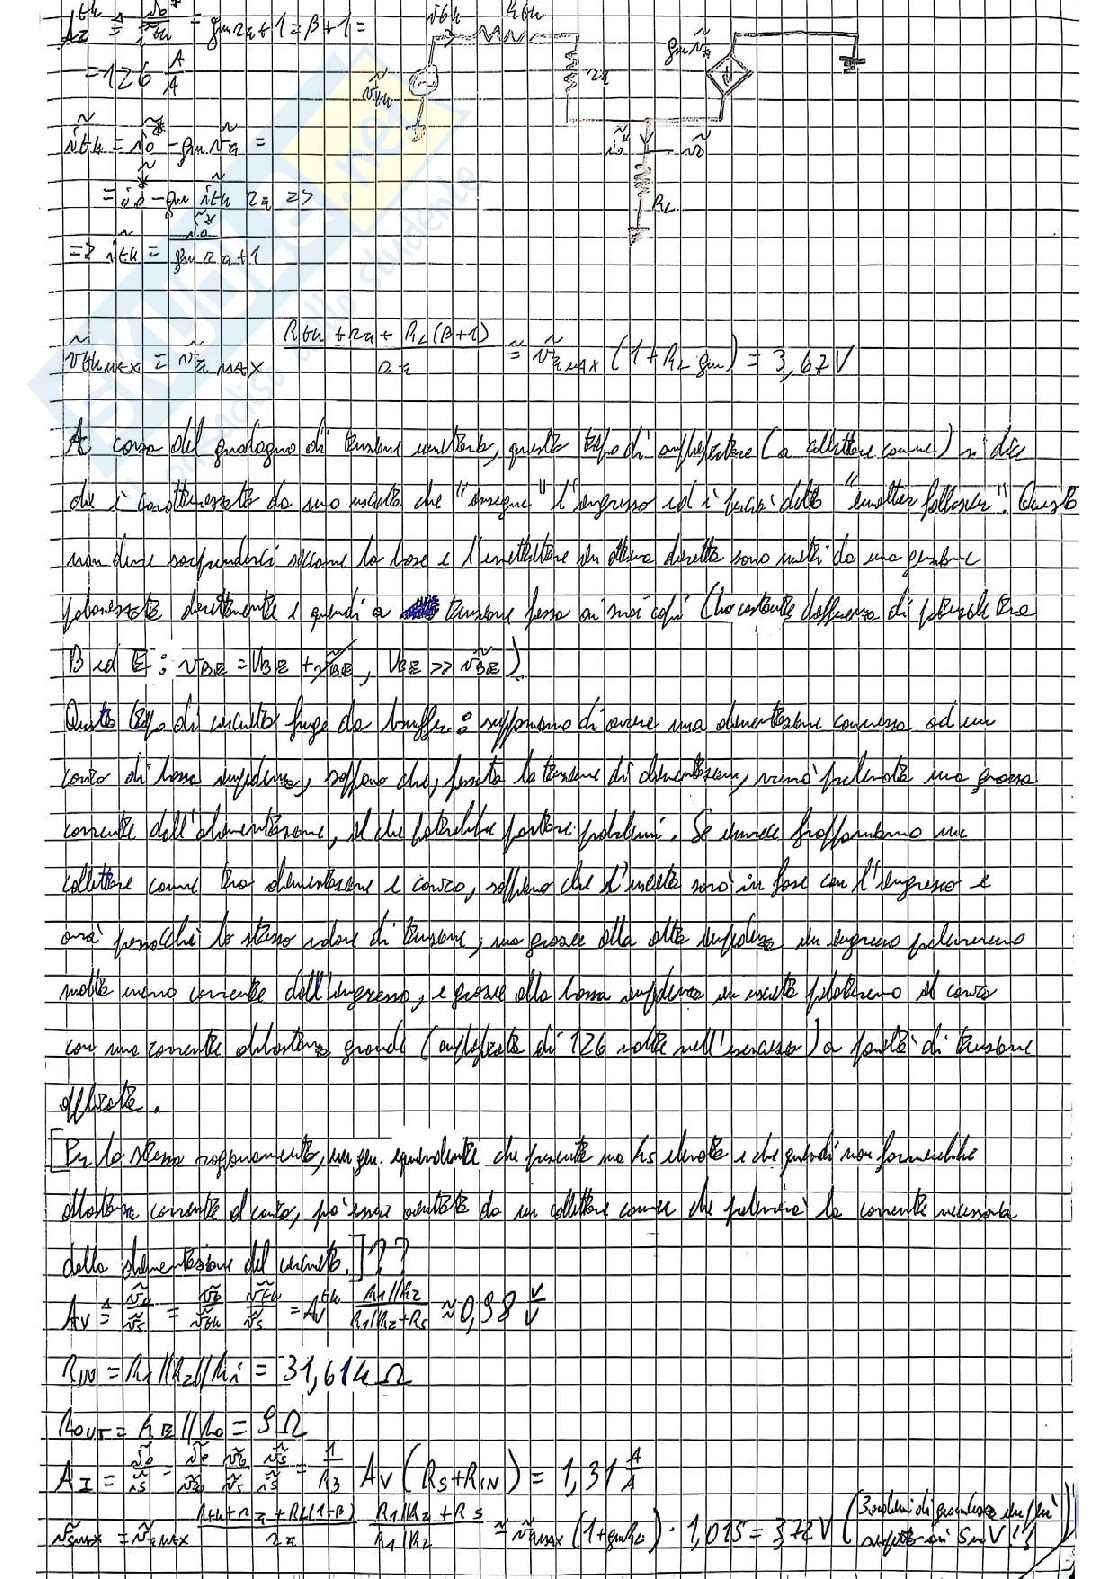 A_I^th ≜ ĩo*/ĩth = gm rπ + 1 = β + 1 =
= 126 A/A
ĩth = ĩo* - gm ṽπ =
= ĩo* - gm ĩth rπ =>
=> ĩth = ĩo*/(gm rπ + 1)
ĩth Rth
ṽth rπ gm ṽπ
ĩo* ṽo
RL
ṽth MAX = ṽπ MAX (Rth + rπ + RL(β+1))/rπ ≈ ṽπ MAX (1 + RL gm) = 3,67 V
A causa del guadagno di tensione unitario, questo tipo di amplificatore (a collettore comune) si dice
che è caratterizzato da una uscita che "insegue" l'ingresso ed è perciò detto "emitter follower". Questo
non deve sorprenderci siccome la base e l'emettitore in attiva diretta sono uniti da una giunzione
polarizzata direttamente e quindi a tensione fissa ai suoi capi (ho costante differenza di potenziale tra
B ed E: vBE = VBE + ṽBE, VBE >> ṽBE).
Questo tipo di circuito funge da buffer: supponiamo di avere una alimentazione connessa ad un
carico di bassa impedenza, sappiamo che, fissata la tensione di alimentazione, verrà prelevata una grossa
corrente dall'alimentazione, il che potrebbe portare problemi. Se invece frapponiamo un
collettore comune tra alimentazione e carico, sappiamo che l'uscita sarà in fase con l'ingresso e
avrà pressocché lo stesso valore di tensione, ma grazie alla alta impedenza in ingresso preleveremo
molta meno corrente dall'ingresso, e grazie alla bassa impedenza in uscita piloteremo il carico
con una corrente abbastanza grande (amplificata di 126 volte nell'esercizio) a parità di tensione
applicata.
[Per lo stesso ragionamento, un gen. equivalente che presenta una Rs elevata e che quindi non fornirebbe
abbastanza corrente al carico, può essere aiutato da un collettore comune che preleverà la corrente necessaria
dalla alimentazione del circuito.]??
Av ≜ ṽo/ṽs = ṽo/ṽth ṽth/ṽs = Av^th R1//R2/(R1//R2+Rs) ≈ 0,98 V/V
RIN = R1//R2//Ri = 31,61kΩ
ROUT = RE//Ro = 9Ω
AI = ĩo/ĩs = ĩo/ṽo ṽo/ṽs ṽs/ĩs = 1/R3 Av (Rs+RIN) = 1,31 A/A
ṽs MAX = ṽπ MAX (Rth+rπ+RL(1+β))/rπ (R1//R2+Rs)/(R1//R2) ≈ ṽπ MAX (1+gmRL) · 1,015 = 3,72 V (3 ordini di grandezza in più
rispetto ai 5mV!!)